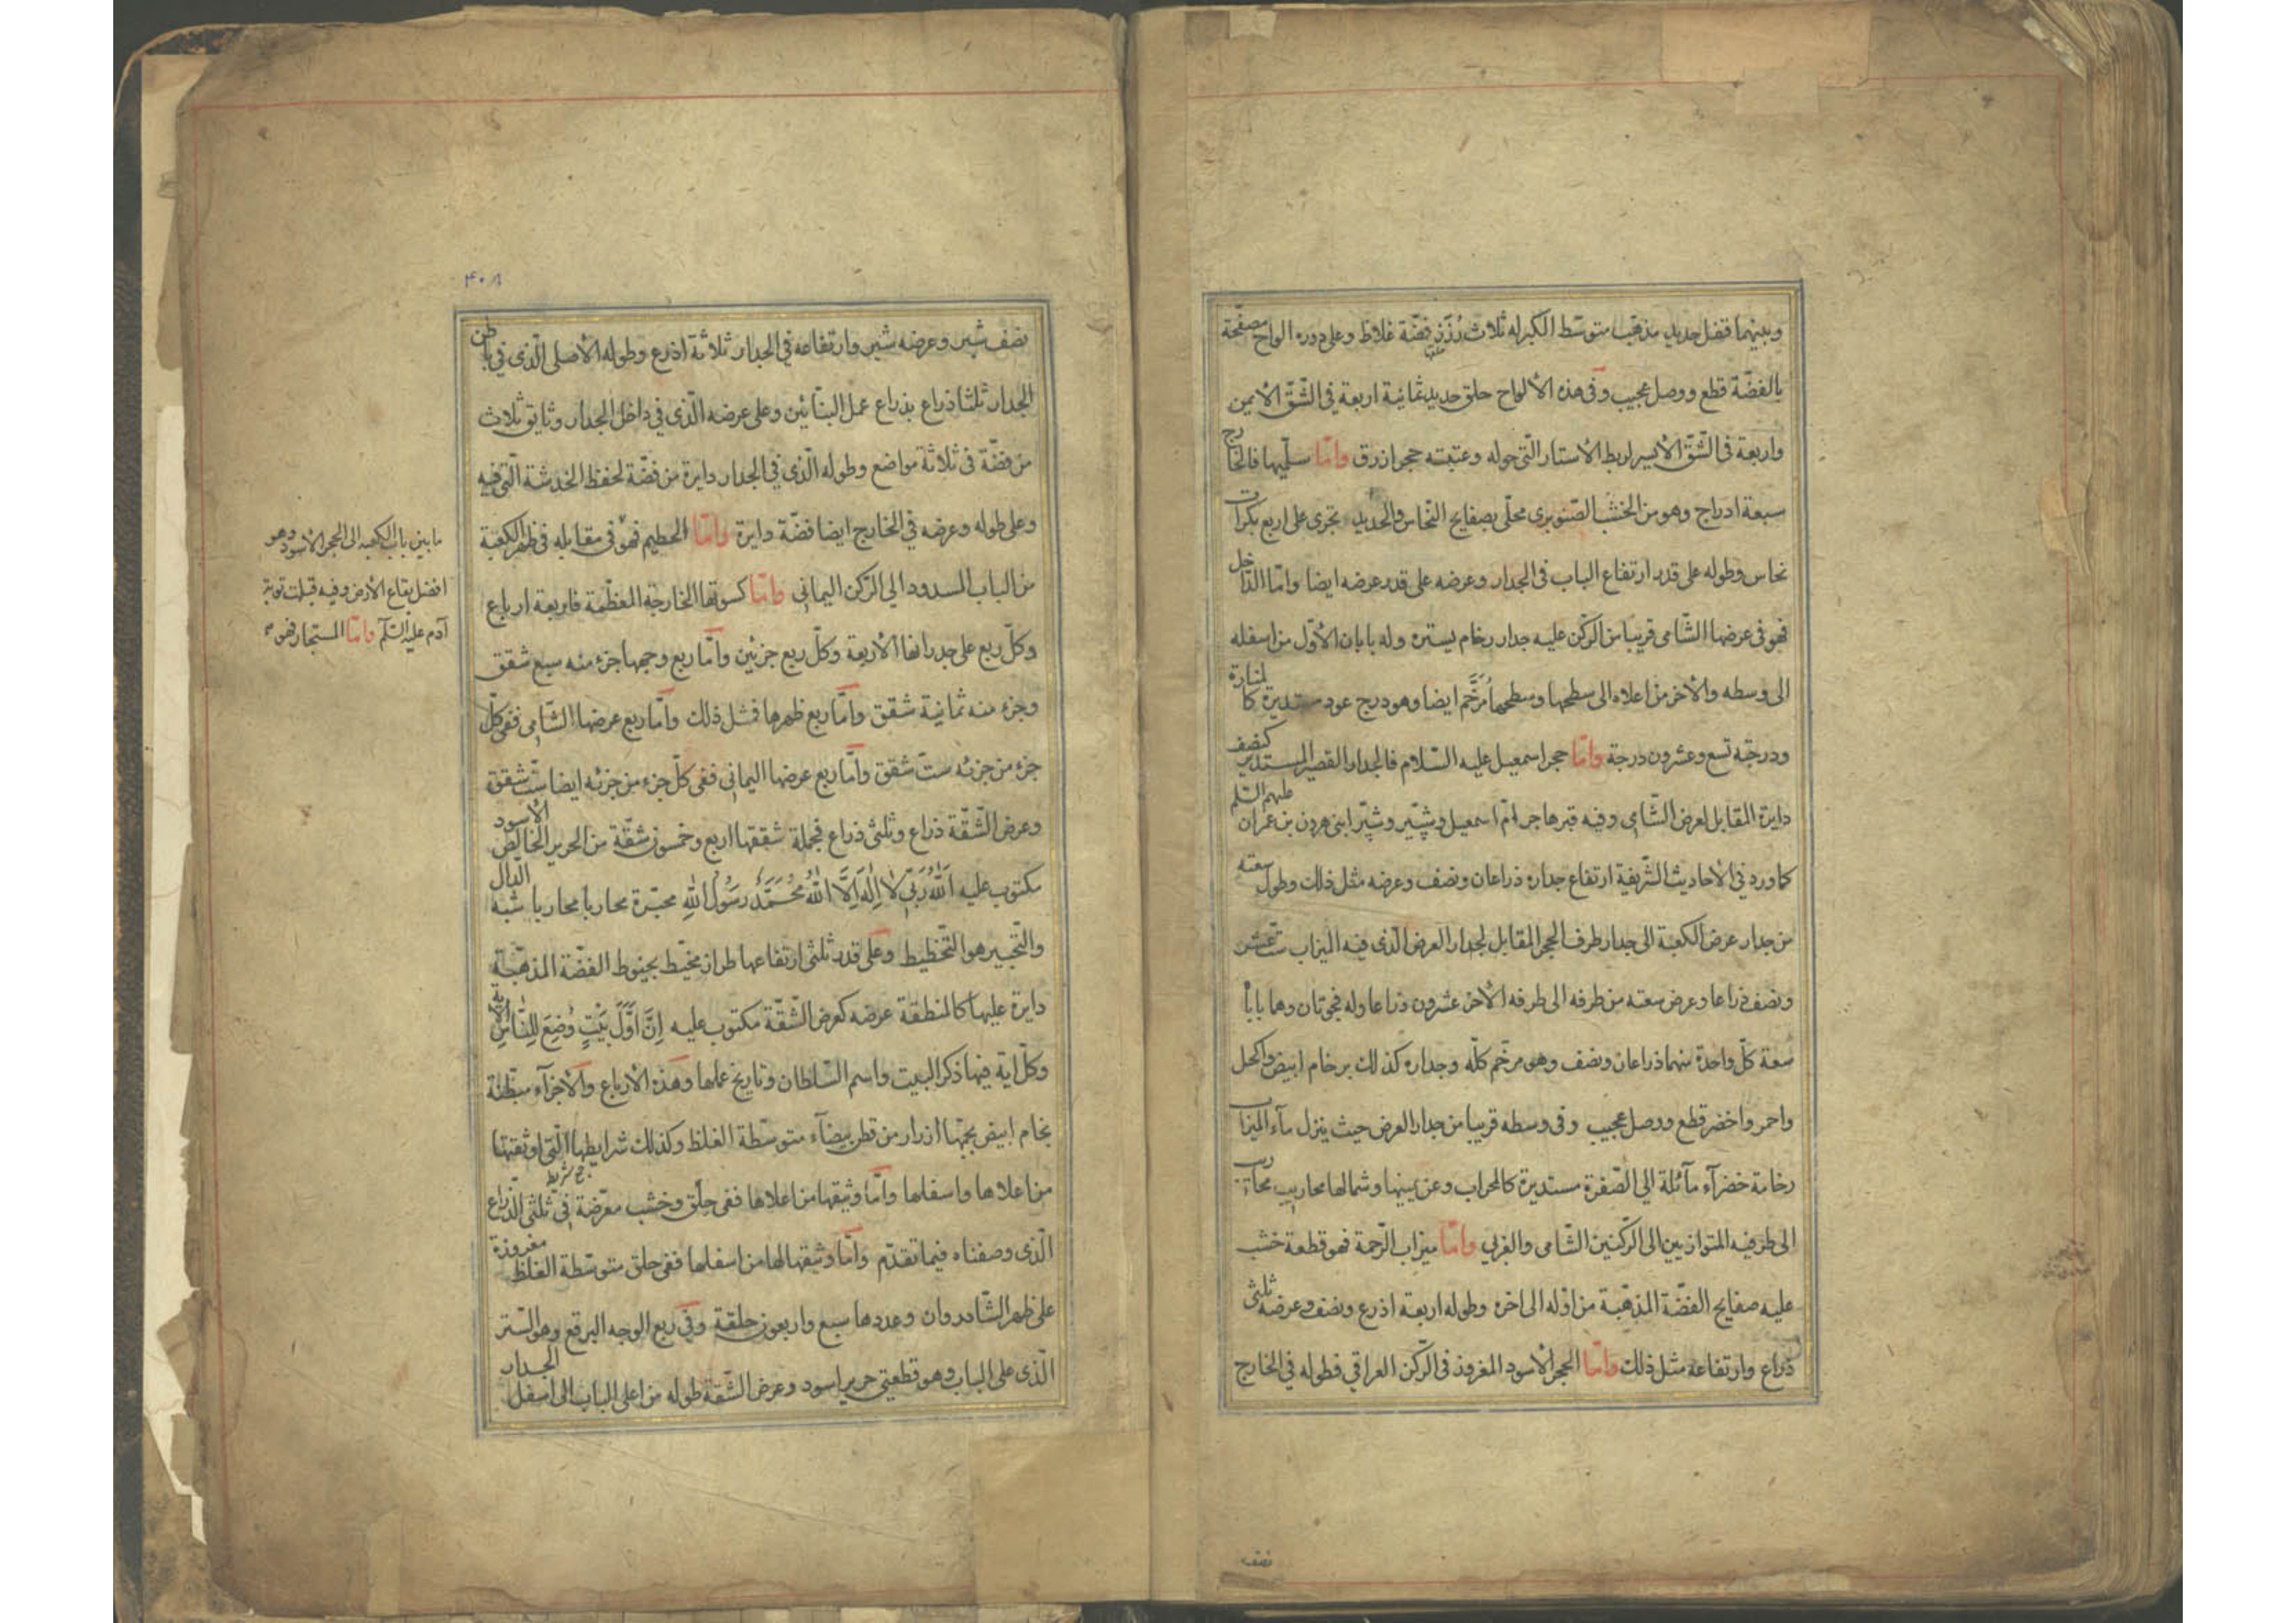 وبينهما قفل حديد مذهّب متوسّط الكبر له ثلاث رُزَزٍ فضّة غلاظ وعلى دوره الواح مصفّحة
بالفضّة قطع ووصل عجيب وفى هذه الألواح حلق حديد ثمانية اربعة فى الشّقّ الأيمن
واربعة فى الشّقّ الأيسر لربط الأستار الّتى حوله وعتبته حجر ازرق وامّا سلّمها فالخارج
سبعة ادراج وهو من الخشب الصّنوبرى محلّى بصفايح النّحاس والحديد تجرى على اربع بكرات
نحاس وطوله على قدر ارتفاع الباب فى الجدار وعرضه على قدر عرضه ايضا وامّا الدّاخل
فهو فى عرضها الشّامى قريبا من الرّكن عليه جدار رخام يستره وله بابان الأوّل من اسفله
الى وسطه والأخر من اعلاه الى سطحها وسطحها مُرَخَّم ايضا وهو درج عود مستديرة كالمنارة
ودرجته تسع وعشرون درجة وامّا حجر اسمعيل عليه السّلام فالجدار القصير المستدير كنصف
دايرة المقابل لعرض الشّامى وفيه قبر هاجر امّ اسمعيل وشبّير وشبّر ابنى هرون بن عمران عليهم السّلم
كما ورد فى الأحاديث الشّريفة ارتفاع جداره ذراعان ونصف وعرضه مثل ذلك وطول سعته
من جدار عرض الكعبة الى جدار طرف الحجر المقابل لجدار العرض الّذى فيه الميزاب ستّ عشر
ونصف ذراعا وعرض سعته من طرفه الى طرفه الأخر عشرون ذراعا وله فجوتان وهما بابا
سعة كلّ واحدة منهما ذراعان ونصف وهو مرخّم كلّه وجداره كذلك برخام ابيض واكحل
واحمر واخضر قطع ووصل عجيب وفى وسطه قريبا من جدار العرض حيث ينزل مآء الميزاب
رخامة خضرآء مآئلة الى الصّفرة مستديرة كالمحراب وعن يمينها وشمالها محاريب محاريب
الى طرفيه المتوازيين الى الرّكنين الشّامى والغربى وامّا ميزاب الرّحمة فهو قطعة خشب
عليه صفايح الفضّة المذهّبة من اوّله الى اخره وطوله اربعة اذرع ونصف وعرضه ثلثى
ذراع وارتفاعه مثل ذلك وامّا الحجر الأسود المغروز فى الرّكن العراقى فطوله فى الخارج
نصف
۴۰۸
نصف شبر وعرضه شبر وارتفاعه فى الجدار ثلاثة اذرع وطوله الأصلى الّذى فى باطن
الجدار ثلثا ذراع بذراع عمل البنّائين وعلى عرضه الّذى فى داخل الجدار وثايق ثلاث
من فضّة فى ثلاثة مواضع وطوله الّذى فى الجدار دايرة من فضّة لحفظ الخدشة الّتى فيه
وعلى طوله وعرضه فى الخارج ايضا فضّة دايرة وامّا الحطيم فهو فى مقابله فى ظهر الكعبة
من الباب المسدود الى الرّكن اليمانى وامّا كسوتها الخارجة المعظّمة فاربعة ارباع
وكلّ ربع على جدرانها الأربعة وكلّ ربع جزئين وامّا ربع وجهها جزء منه سبع شقق
وجزء منه ثمانية شقق وامّا ربع ظهرها فمثل ذلك وامّا ربع عرضها الشّامى ففى كلّ
جزء من جزئه ستّ شقق وامّا ربع عرضها اليمانى ففى كلّ جزء من جزئه ايضا ستّ شقق
وعرض الشّقّة ذراع وثلثى ذراع فجملة شققها اربع وخمسون شقّة من الحرير الخالص الأسود
مكتوب عليه اَللهُ رَبّى لا اِلٰهَ اِلَّا اللهُ مُحَمَّدٌ رَسُولُ اللهِ محبّرة محاربا محاربا شبه الدّال
والتّحبير هو التّخطيط وعلى قدر ثلثى ارتفاعها طراز مخيّط بخيوط الفضّة المذهّبة
دايرة عليها كالمنطقة عرضه كعرض الشّقّة مكتوب عليه اِنَّ اَوَّلَ بَيْتٍ وُضِعَ لِلنَّاسِ الأية
وكلّ اية فيها ذكر البيت واسم السّلطان وتاريخ عملها وهذه الأرباع والأجزآء مبطّنة
بخام ابيض بجبهها ازرار من قطن بيضآء متوسّطة الغلظ وكذلك شرايطها الّتى اوثقتها
ج شريط
من اعلاها واسفلها وامّا وثيقها من اعلاها ففى حلق وخشب معرّضة فى ثلثى الذّراع
الّذى وصفناه فيما تقدّم وامّا وثيقها لها من اسفلها ففى حلق متوسّطة الغلظ مغروزة
على ظهر الشّاذروان وعددها سبع واربعون حلقة وفى ربع الوجه البرقع وهو السّتر
الّذى على الباب وهو قطعتى حرير اسود وعرض الشّقة طوله من اعلى الباب الى اسفل الجدار
ما بين باب الكعبه الى الحجر الأسود وهو
افضل بقاع الأرض وفيه قبلت توبة
آدم عليه السّلآم وامّا المستجار فهو